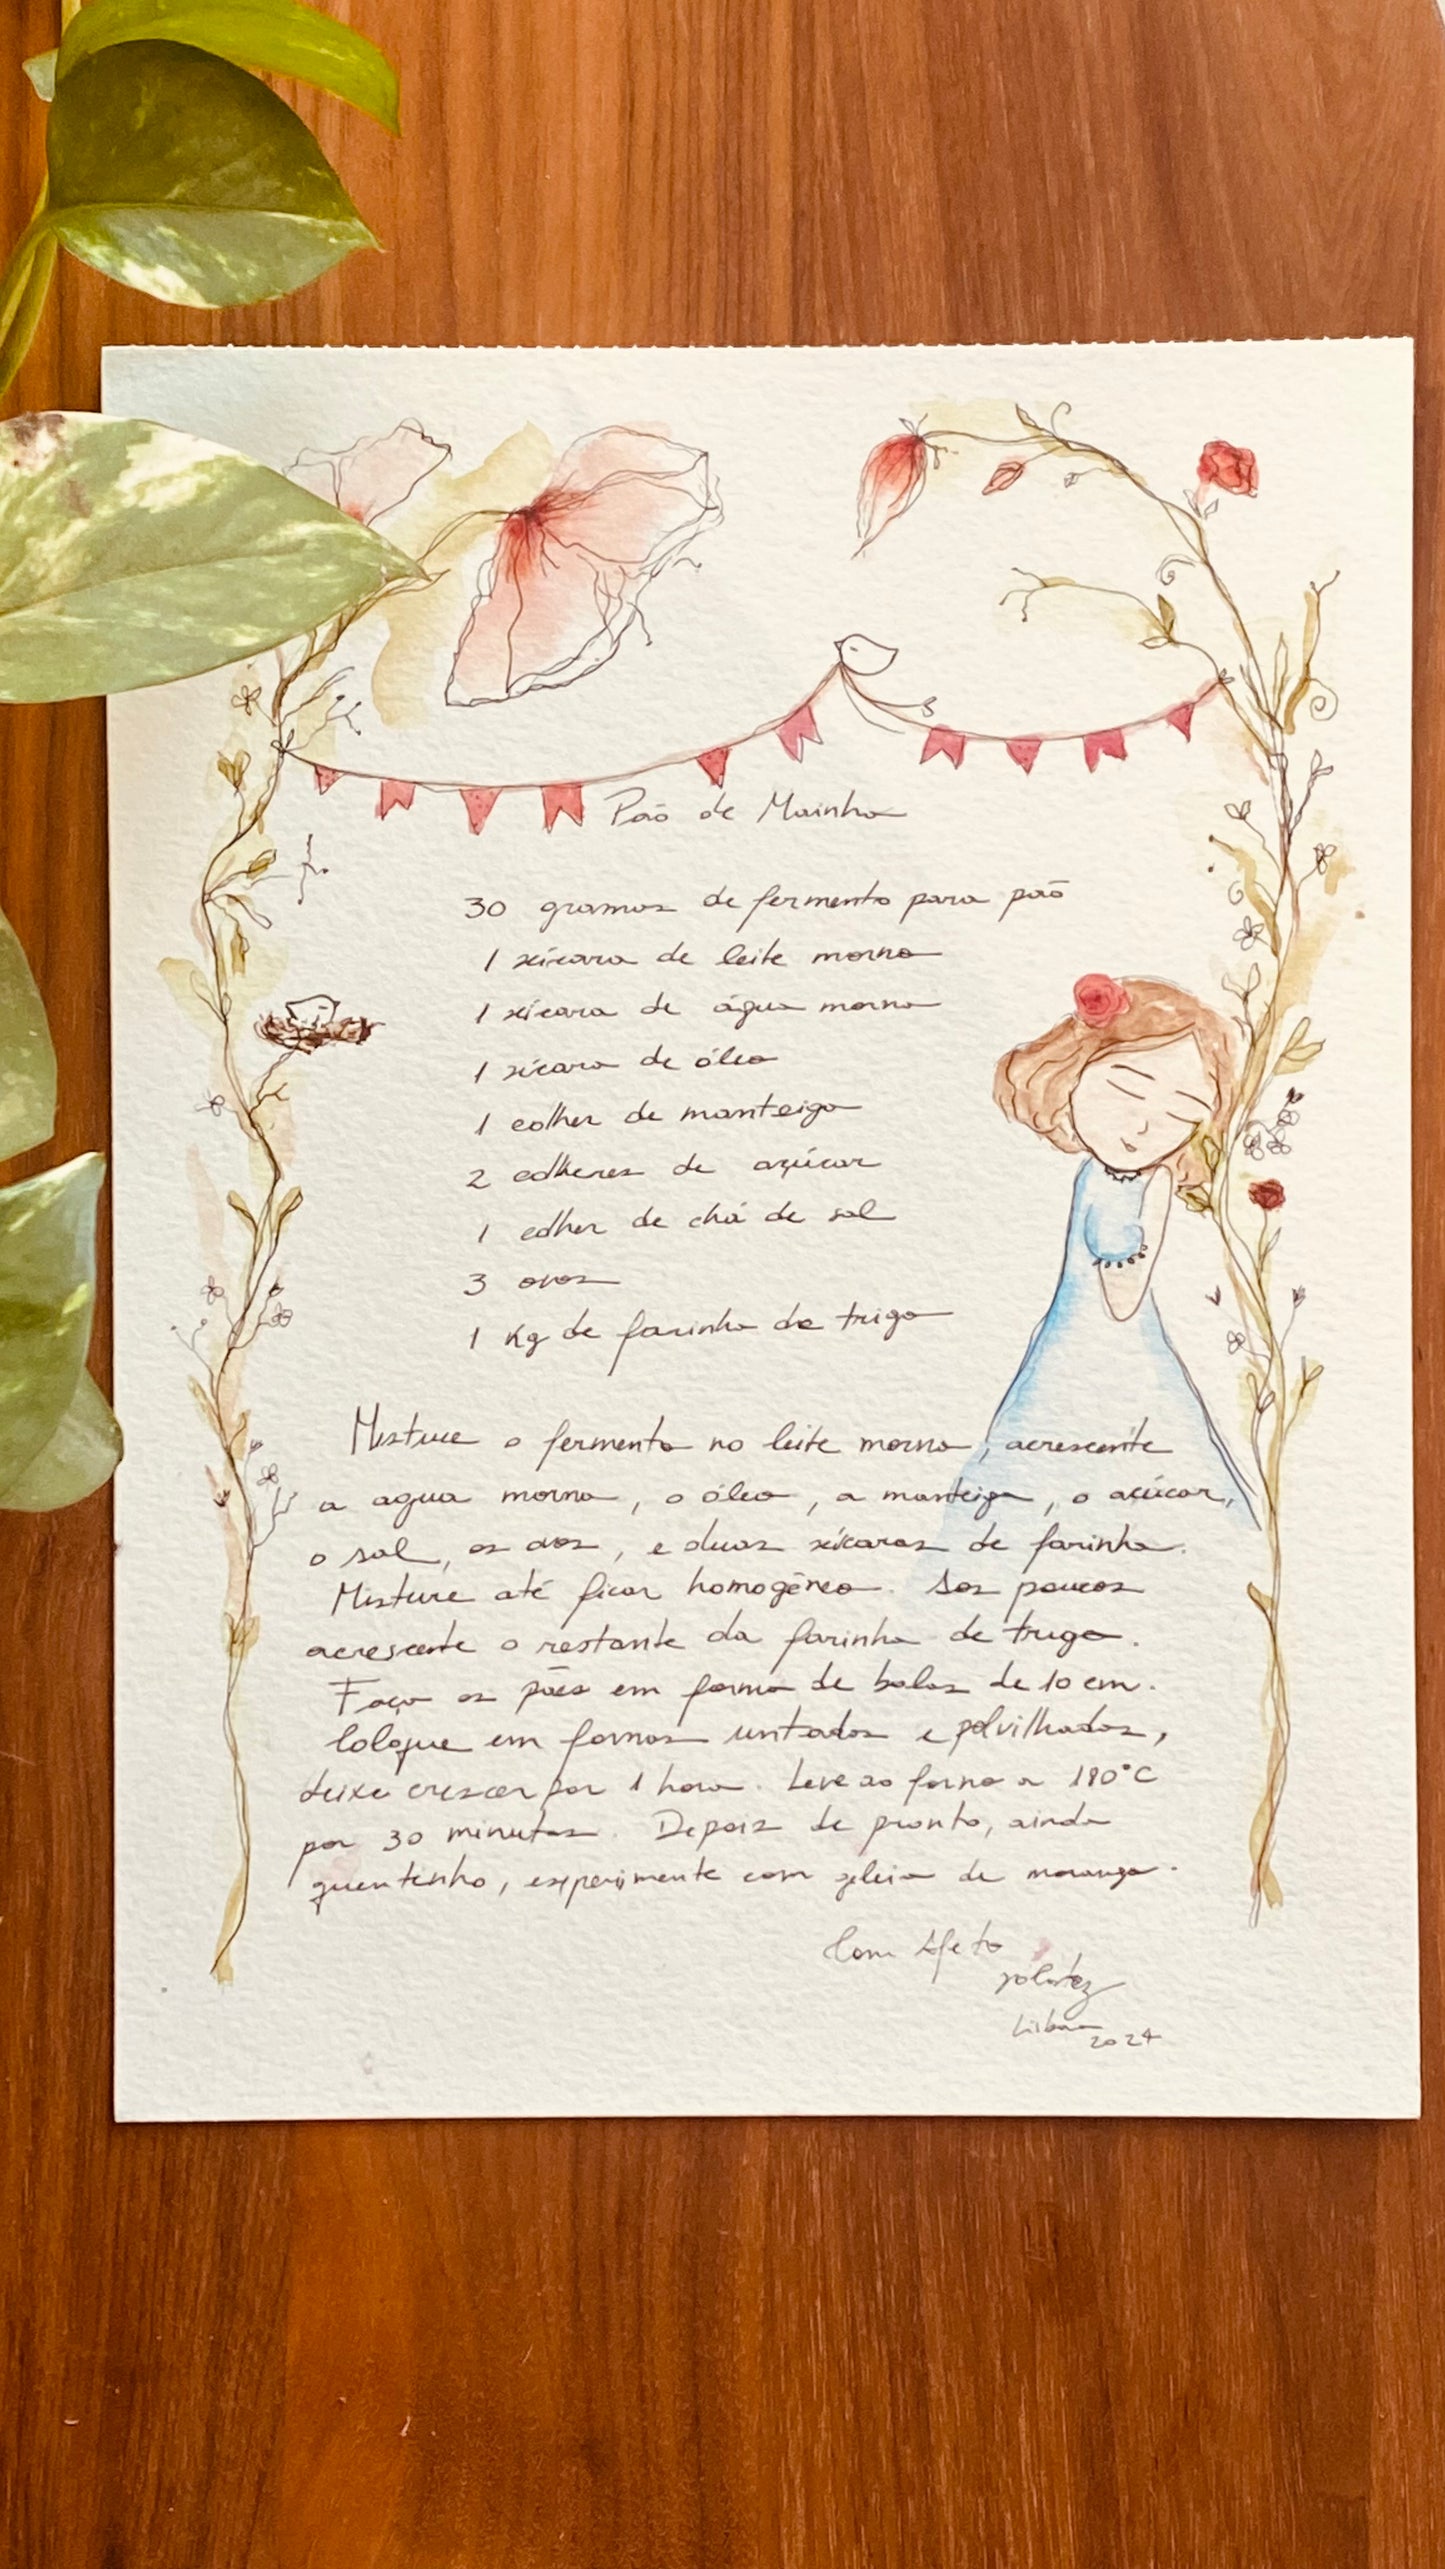 Pão de Mainha
30 gramas de fermento para pão
1 xícara de leite morno
1 xícara de água morna
1 xícara de óleo
1 colher de manteiga
2 colheres de açúcar
1 colher de chá de sal
3 ovos
1 Kg de farinha de trigo
Misture o fermento no leite morno, acrescente
a agua morna, o óleo, a manteiga, o açúcar,
o sal, os ovos, e duas xícaras de farinha.
Misture até ficar homogêneo. Aos poucos
acrescente o restante da farinha de trigo.
Faça os pães em forma de bolas de 10 cm.
Coloque em formas untadas e polvilhadas,
deixe crescer por 1 hora. Leve ao forno a 180°C
por 30 minutos. Depois de pronto, ainda
quentinho, experimente com geleia de morango.
Com Afeto
Lisboa
2024